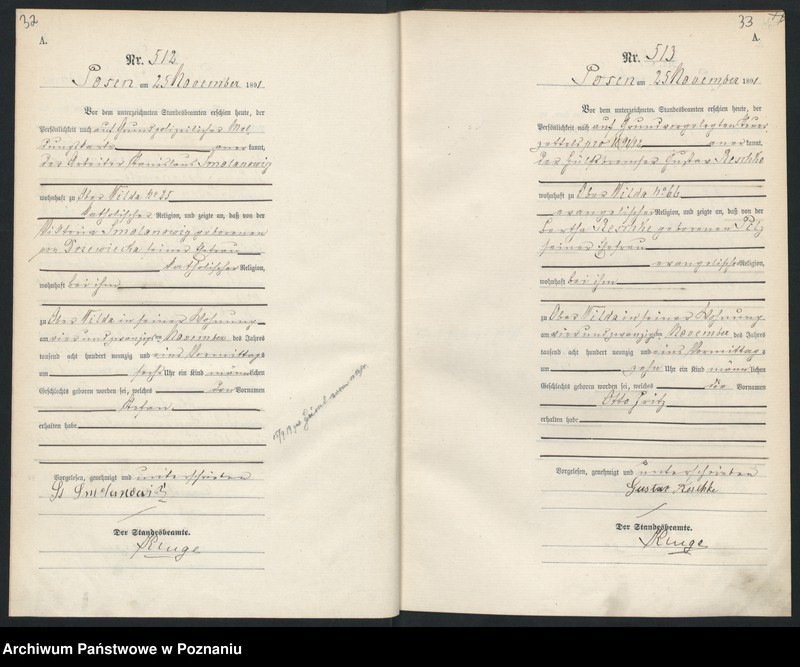 32
A.
Nr. 512
Posen am 25 November 1891
Vor dem unterzeichneten Standesbeamten erschien heute, der
Persönlichkeit nach auf Grund polizeilicher Mel
dungskarte anerkannt,
der Arbeiter Stanislaus Smolanowig
wohnhaft zu Ober Wilda No 25
katholischer Religion, und zeigte an, daß von der
Viktoria Smolanowig geborenen
seiner Ehefrau
katholischer Religion,
wohnhaft bei ihm
zu Ober Wilda in seiner Wohnung
am vier und zwanzigsten November des Jahres
tausend acht hundert neunzig und eins Vormittags
um sechs Uhr ein Kind männlichen
Geschlechts geboren worden sei, welches den Vornamen
Stefan
erhalten habe
Vorgelesen, genehmigt und unterschrieben
St Smolanowig
Der Standesbeamte.
33
A.
Nr. 513
Posen am 25 November 1891
Vor dem unterzeichneten Standesbeamten erschien heute, der
Persönlichkeit nach auf Grund vorgelegten Steuer
zettels pro 1891/92 anerkannt,
der Hülfsbremser Gustav Reschke
wohnhaft zu Ober Wilda No 66
evangelischer Religion, und zeigte an, daß von der
Bertha Reschke geborenen
seiner Ehefrau
evangelischer Religion,
wohnhaft bei ihm
zu Ober Wilda in seiner Wohnung
am vier und zwanzigsten November des Jahres
tausend acht hundert neunzig und eins Vormittags
um zehn Uhr ein Kind männlichen
Geschlechts geboren worden sei, welches die Vornamen
Otto Fritz
erhalten habe
Vorgelesen, genehmigt und unterschrieben
Gustav Reschke
Der Standesbeamte.
Archiwum Państwowe w Poznaniu